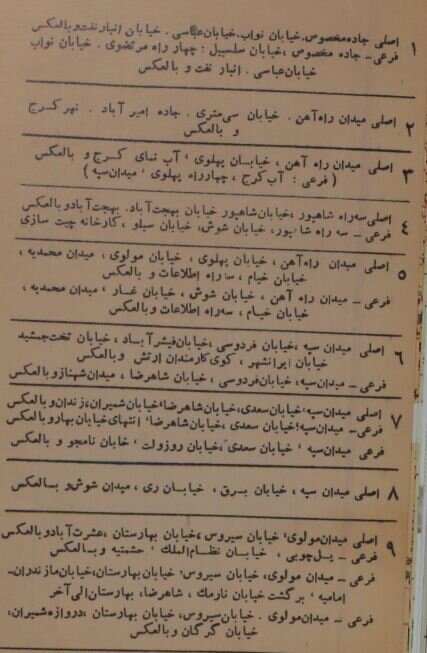 ۱ اصلی جاده مخصوص، خیابان نواب، خیابان عباسی . خیابان انبار نفت و بالعکس
فرعی ـ جاده مخصوص ، خیابان سلسبیل : چهار راه مرتضوی . خیابان نواب
خیابان عباسی . انبار نفت و بالعکس
۲ اصلی میدان راه آهن . خیابان سی متری . جاده امیر آباد . نهر کرج
و بالعکس
۳ اصلی میدان راه آهن ، خیابان پهلوی ، آب نمای کرج و بالعکس
( فرعی : آب کرج ، چهارراه پهلوی ، میدان سپه )
۴ اصلی سه راه شاهپور ، خیابان شاهپور خیابان بهجت آباد. بهجت آباد و بالعکس
فرعی ـ سه راه شاهپور، خیابان شوش، خیابان سیلو ، کارخانه چیت سازی
۵ اصلی میدان راه آهن ، خیابان پهلوی ، خیابان مولوی ، میدان محمدیه ،
خیابان خیام ، سه راه اطلاعات و بالعکس
فرعی ـ میدان راه آهن ، خیابان شوش ، خیابان غار ، میدان محمدیه ،
خیابان خیام ، سه راه اطلاعات و بالعکس
۶ اصلی میدان سپه ، خیابان فردوسی ، خیابان فیشر آباد ، خیابان تخت جمشید
خیابان ایرانشهر ، کوی کارمندان ارتش و بالعکس
فرعی ـ میدان سپه، خیابان فردوسی ، خیابان شاهرضا ، میدان شهناز و بالعکس
۷ اصلی میدان سپه، خیابان سعدی، خیابان شاهرضا، خیابان شمیران، زندان و بالعکس
فرعی ـ میدان سپه، خیابان سعدی ، خیابان شاهرضا، انتهای خیابان بهار و بالعکس
فرعی میدان سپه ، خیابان سعدی ، خیابان روزولت ، خابان نامجو و بالعکس
۸ اصلی میدان سپه ، خیابان برق ، خیابان ری ، میدان شوش و بالعکس
۹ اصلی میدان مولوی، خیابان سیروس ، خیابان بهارستان ، عشرت آباد و بالعکس
فرعی ـ پل چوبی ، خیابان نظام الملک ، حشمتیه و بالعکس
فرعی ـ میدان مولوی، خیابان سیروس، خیابان بهارستان، خیابان مازندران ـ
امامیه ، برگشت خیابان نارمک ، شاهرضا، بهارستان الی آخر
فرعی ـ میدان مولوی . خیابان سیروس، خیابان بهارستان ، دروازه شمیران،
خیابان گرگان و بالعکس